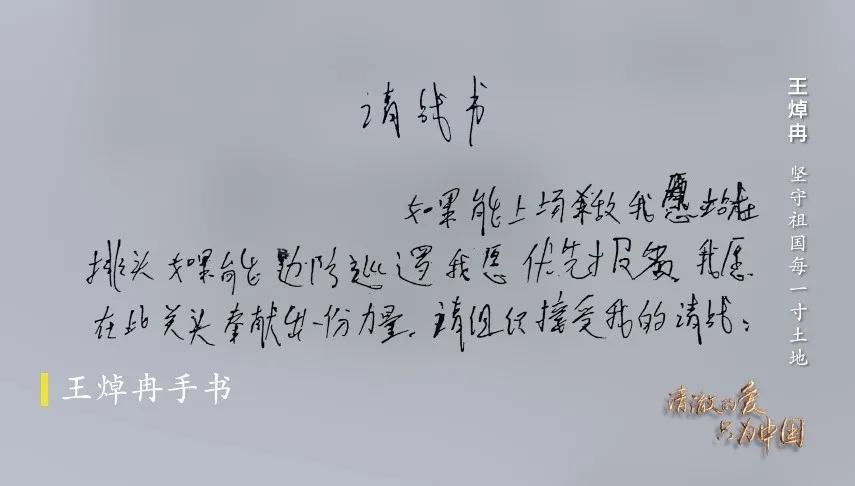 请战书
如果能上场杀敌我愿站在
排头如果能边防巡逻我愿优先报名 我愿
在此关头奉献出一份力量。请组织接受我的请战:
王焯冉手书
王焯冉 坚守祖国每一寸土地
清澈的爱
只为中国